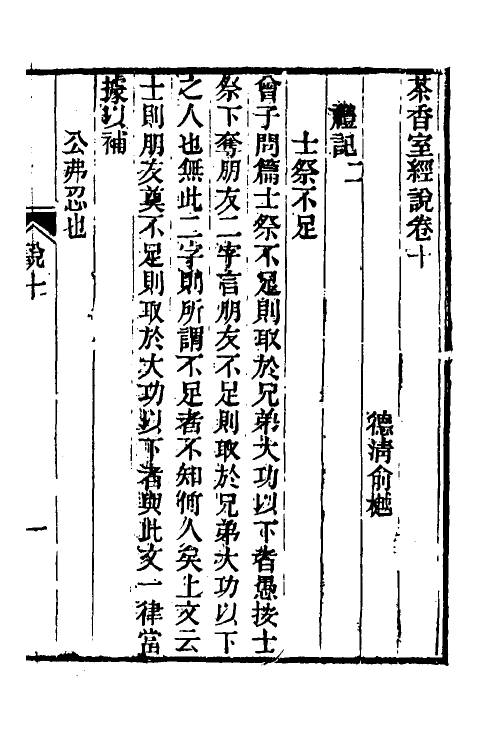 茶香室經說卷十
德清俞樾
禮記二
士祭不足
曾子問篇士祭不足則取於兄弟大功以下者愚按士
祭下奪朋友二字言朋友不足則取於兄弟大功以下
之人也無此二字則所謂不足者不知何人矣上文云
士則朋友奠不足則取於大功以下者與此文一律當
據以補
公弗忍也
說十
一